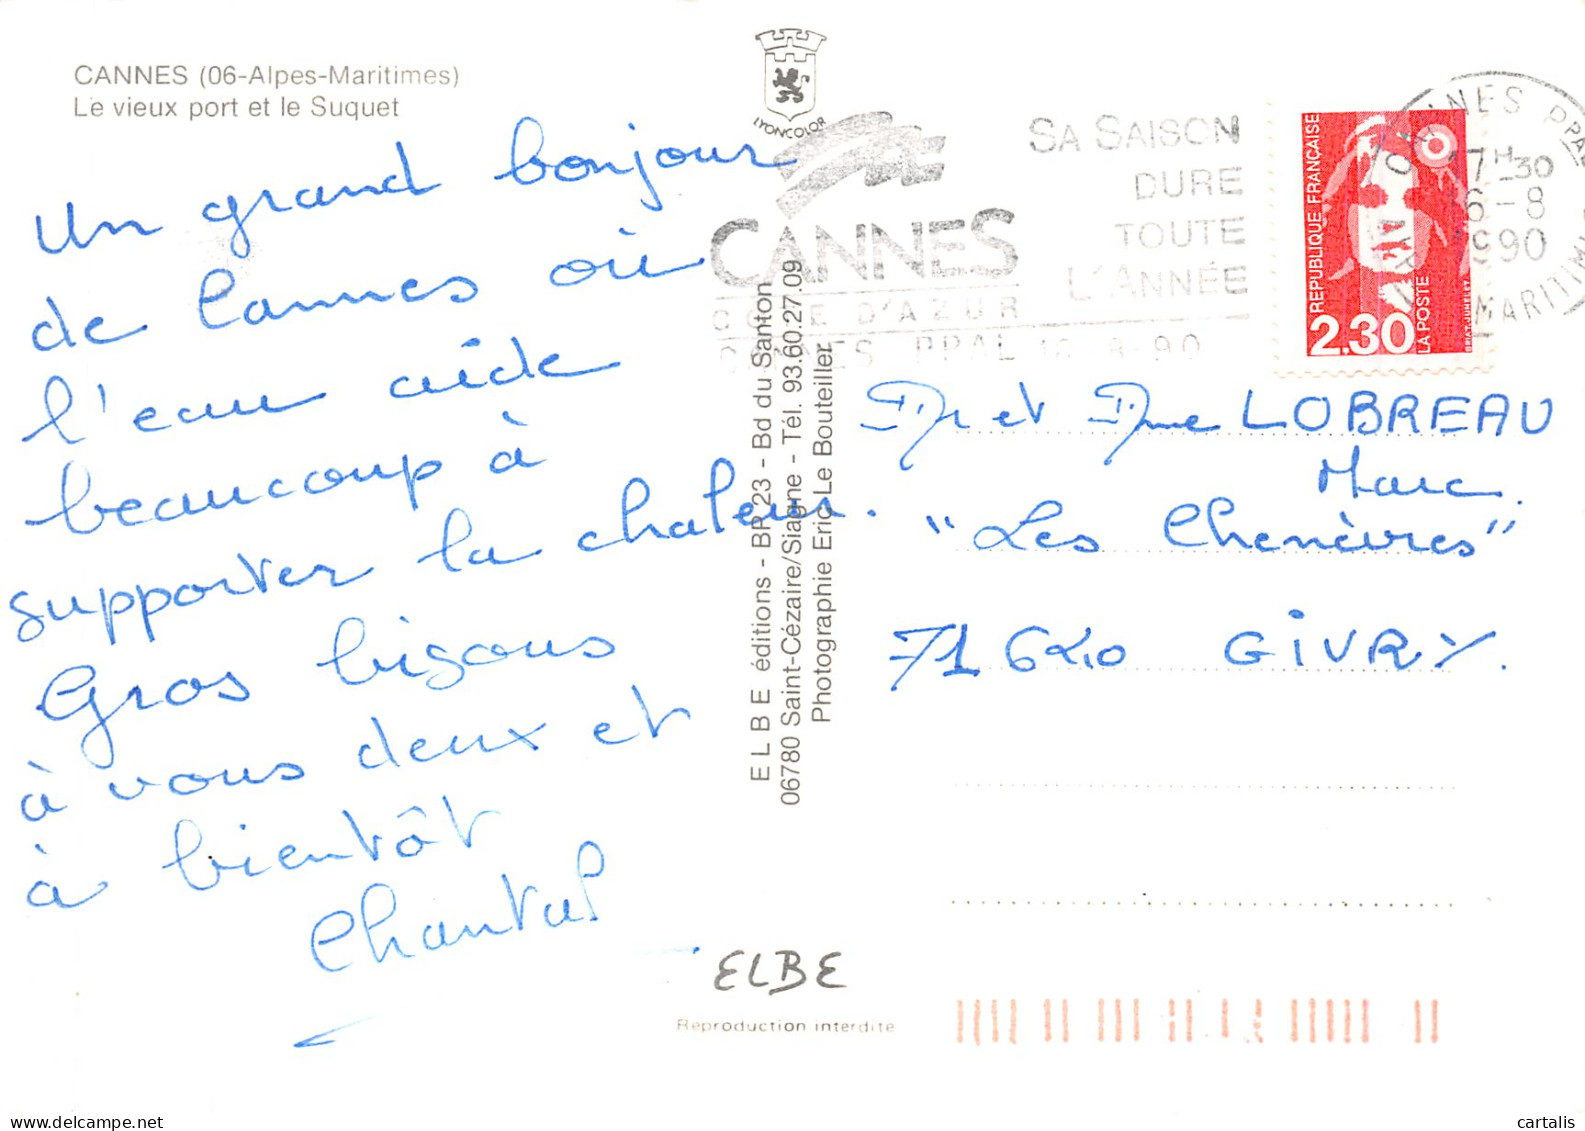 CANNES (06-Alpes-Maritimes)
Le vieux port et le Suquet
Un grand bonjour
de Cannes où
l'eau aide
beaucoup à
supporter la chaleur.
Gros bisous
à vous deux et
à bientôt
Chantal
LYONCOLOR
CANNES
COTE D'AZUR
SA SAISON
DURE
TOUTE
L'ANNÉE
CANNES PPAL 16-8-90
REPUBLIQUE FRANÇAISE
2,30
LA POSTE
CANNES PPAL
17H30
16-8
1990
MARITIMES
ELBE éditions - BP 23 - Bd du Santon
06780 Saint-Cézaire/Siagne - Tél. 93.60.27.09
Photographie Eric Le Bouteiller
Mr et Mme LOBREAU
Marc.
"Les Chenèvres"
71640 GIVRY.
ELBE
Reproduction interdite
cartalis